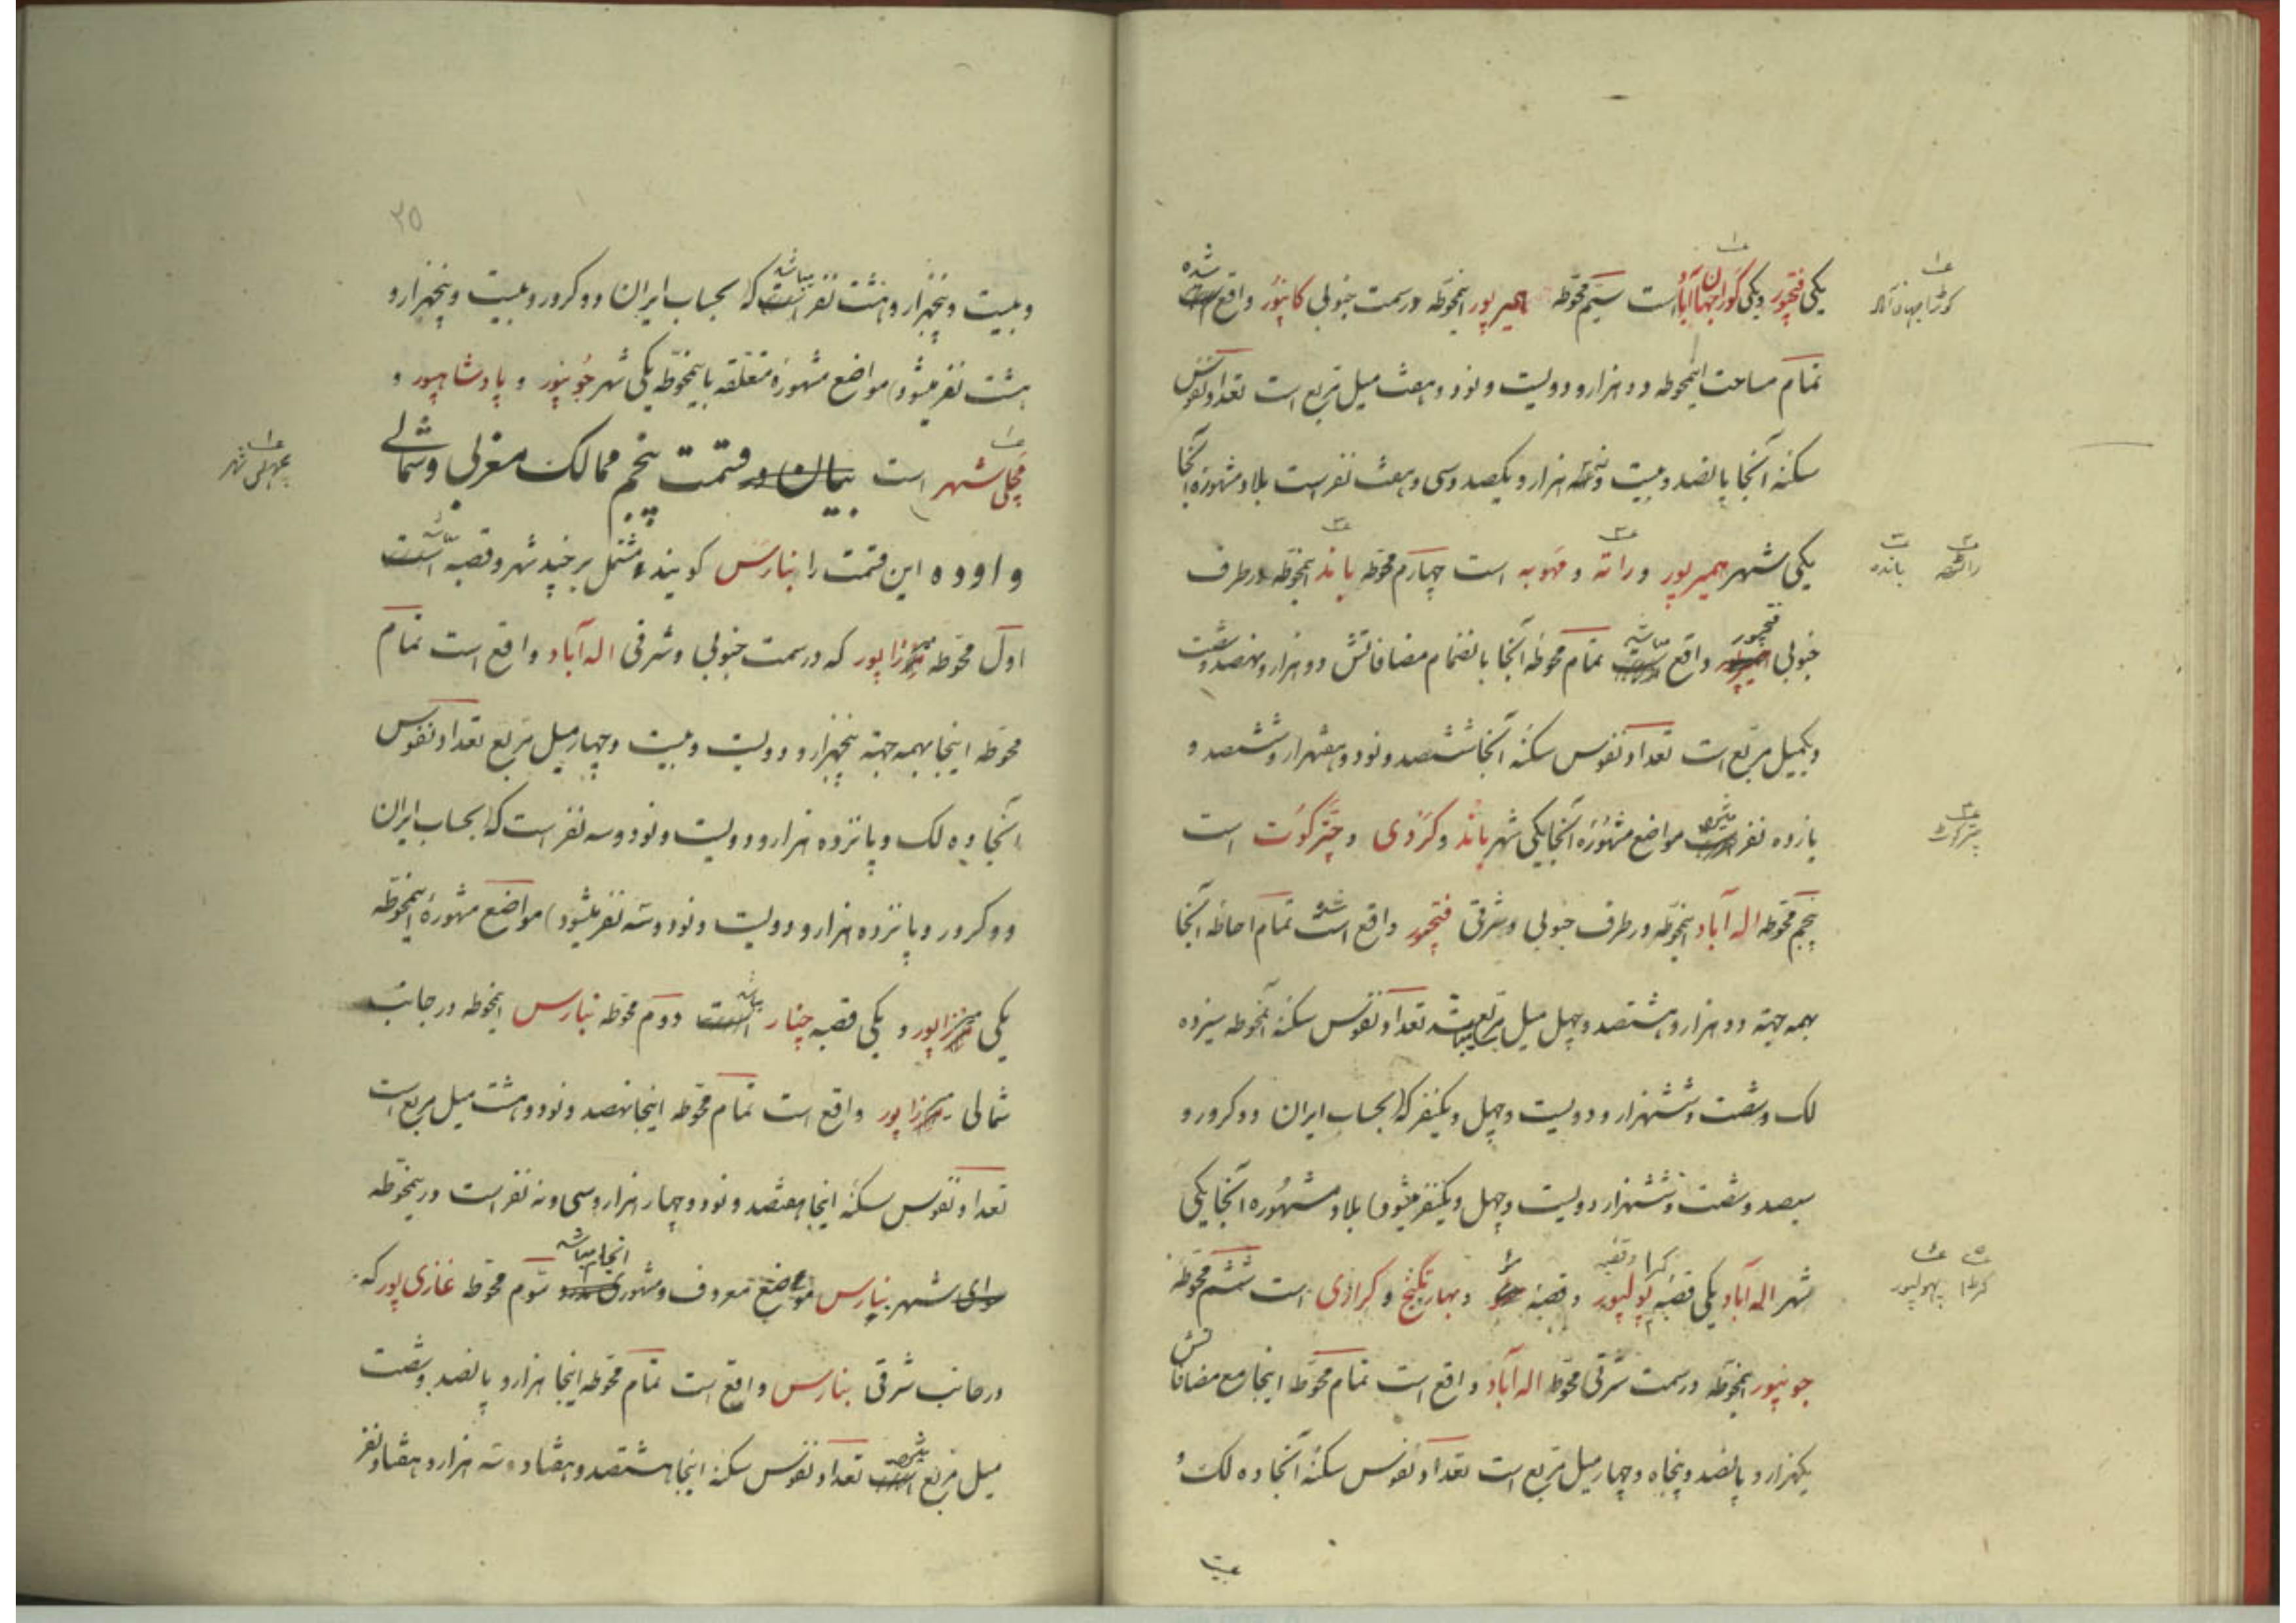 یکی فتحپور و یکی کوراجهان‌آباد است سیم محوطه همیرپور اینمحوطه در سمت جنوبی کانپور واقع شده
تمام مساحت اینمحوطه دو هزار و دویست و نود و هشت میل مربع است تعداد نفوس
سکنه آنجا پانصد و بیست و نه هزار و یکصد و سی و هفت نفر است بلاد مشهوره آنجا
یکی شهر همیرپور و راته و مهوبه است چهارم محوطه باند اینمحوطه در طرف
جنوبی فتحپور واقع تمام محوطه آنجا بانضمام مضافاتش دو هزار و نهصد و شصت
و یکمیل مربع است تعداد نفوس سکنه آنجا ششصد و نود و هفتهزار و ششصد و
یازده نفر مواضع مشهوره آنجا یکی شهر باند و کروی و چترکوت است
پنجم محوطه اله آباد اینمحوطه در طرف جنوبی و شرقی فتحپور واقع شده تمام احاطه آنجا
بهمه جهته دو هزار و هشتصد و چهل میل مربع تعداد نفوس سکنه آنمحوطه سیزده
لک و شصت و ششهزار و دویست و چهل و یکنفر که بحساب ایران دو کرور و
سیصد و شصت و ششهزار دویست و چهل و یکنفر میشود بلاد مشهوره آنجا یکی
شهر اله آباد یکی قصبه پولپور و قصبه و بهارتگنج و کراری است ششم محوطه
جونپور اینمحوطه در سمت شرقی محوطه اله آباد واقع است تمام محوطه اینجا مع مضافاتش
یکهزار و پانصد و پنجاه و چهار میل مربع است تعداد نفوس سکنه آنجا ده لک و
بیست
کوڑا جهان آباد
راٹهه باندہ
چترکوٹ
کڑا پهولپور
۲۵
و بیست و پنجهزار و هشت نفر میباشد که بحساب ایران دو کرور و بیست و پنجهزار و
هشت نفر میشود) مواضع مشهوره متعلقه باینمحوطه یکی شهر جونپور و پادشاهپور و
مچلی شهر است بیان در قسمت پنجم ممالک مغربی و شمالی
و اووده این قسمت را بنارس کویند مشتمل بر چند شهر و قصبه است
اول محوطه میرزاپور که در سمت جنوبی و شرقی اله آباد واقع است تمام
محوطه اینجا بهمه جهته پنجهزار و دویست و بیست و چهار میل مربع تعداد نفوس
آنجا ده لک و پانزده هزار و دویست و نود و سه نفر است که بحساب ایران
دو کرور و پانزده هزار و دویست و نود و سه نفر میشود) مواضع مشهوره اینمحوطه
یکی میرزاپور و یکی قصبه چنار میباشد دوم محوطه بنارس اینمحوطه در جانب
شمالی میرزاپور واقع است تمام محوطه اینجا نهصد و نود و هشت میل مربع است
تعداد نفوس سکنه اینجا هفتصد و نود و چهار هزار و سی و نه نفر است در اینمحوطه
سوای شهر بنارس موضع معروف و مشهوری آنجا میباشد سوم محوطه غازی پور که
در جانب شرقی بنارس واقع است تمام محوطه اینجا هزار و پانصد و شصت
میل مربع تعداد نفوس سکنه اینجا هشتصد و هفتاد و سه هزار و هفتاد نفر
مچهلی شهر